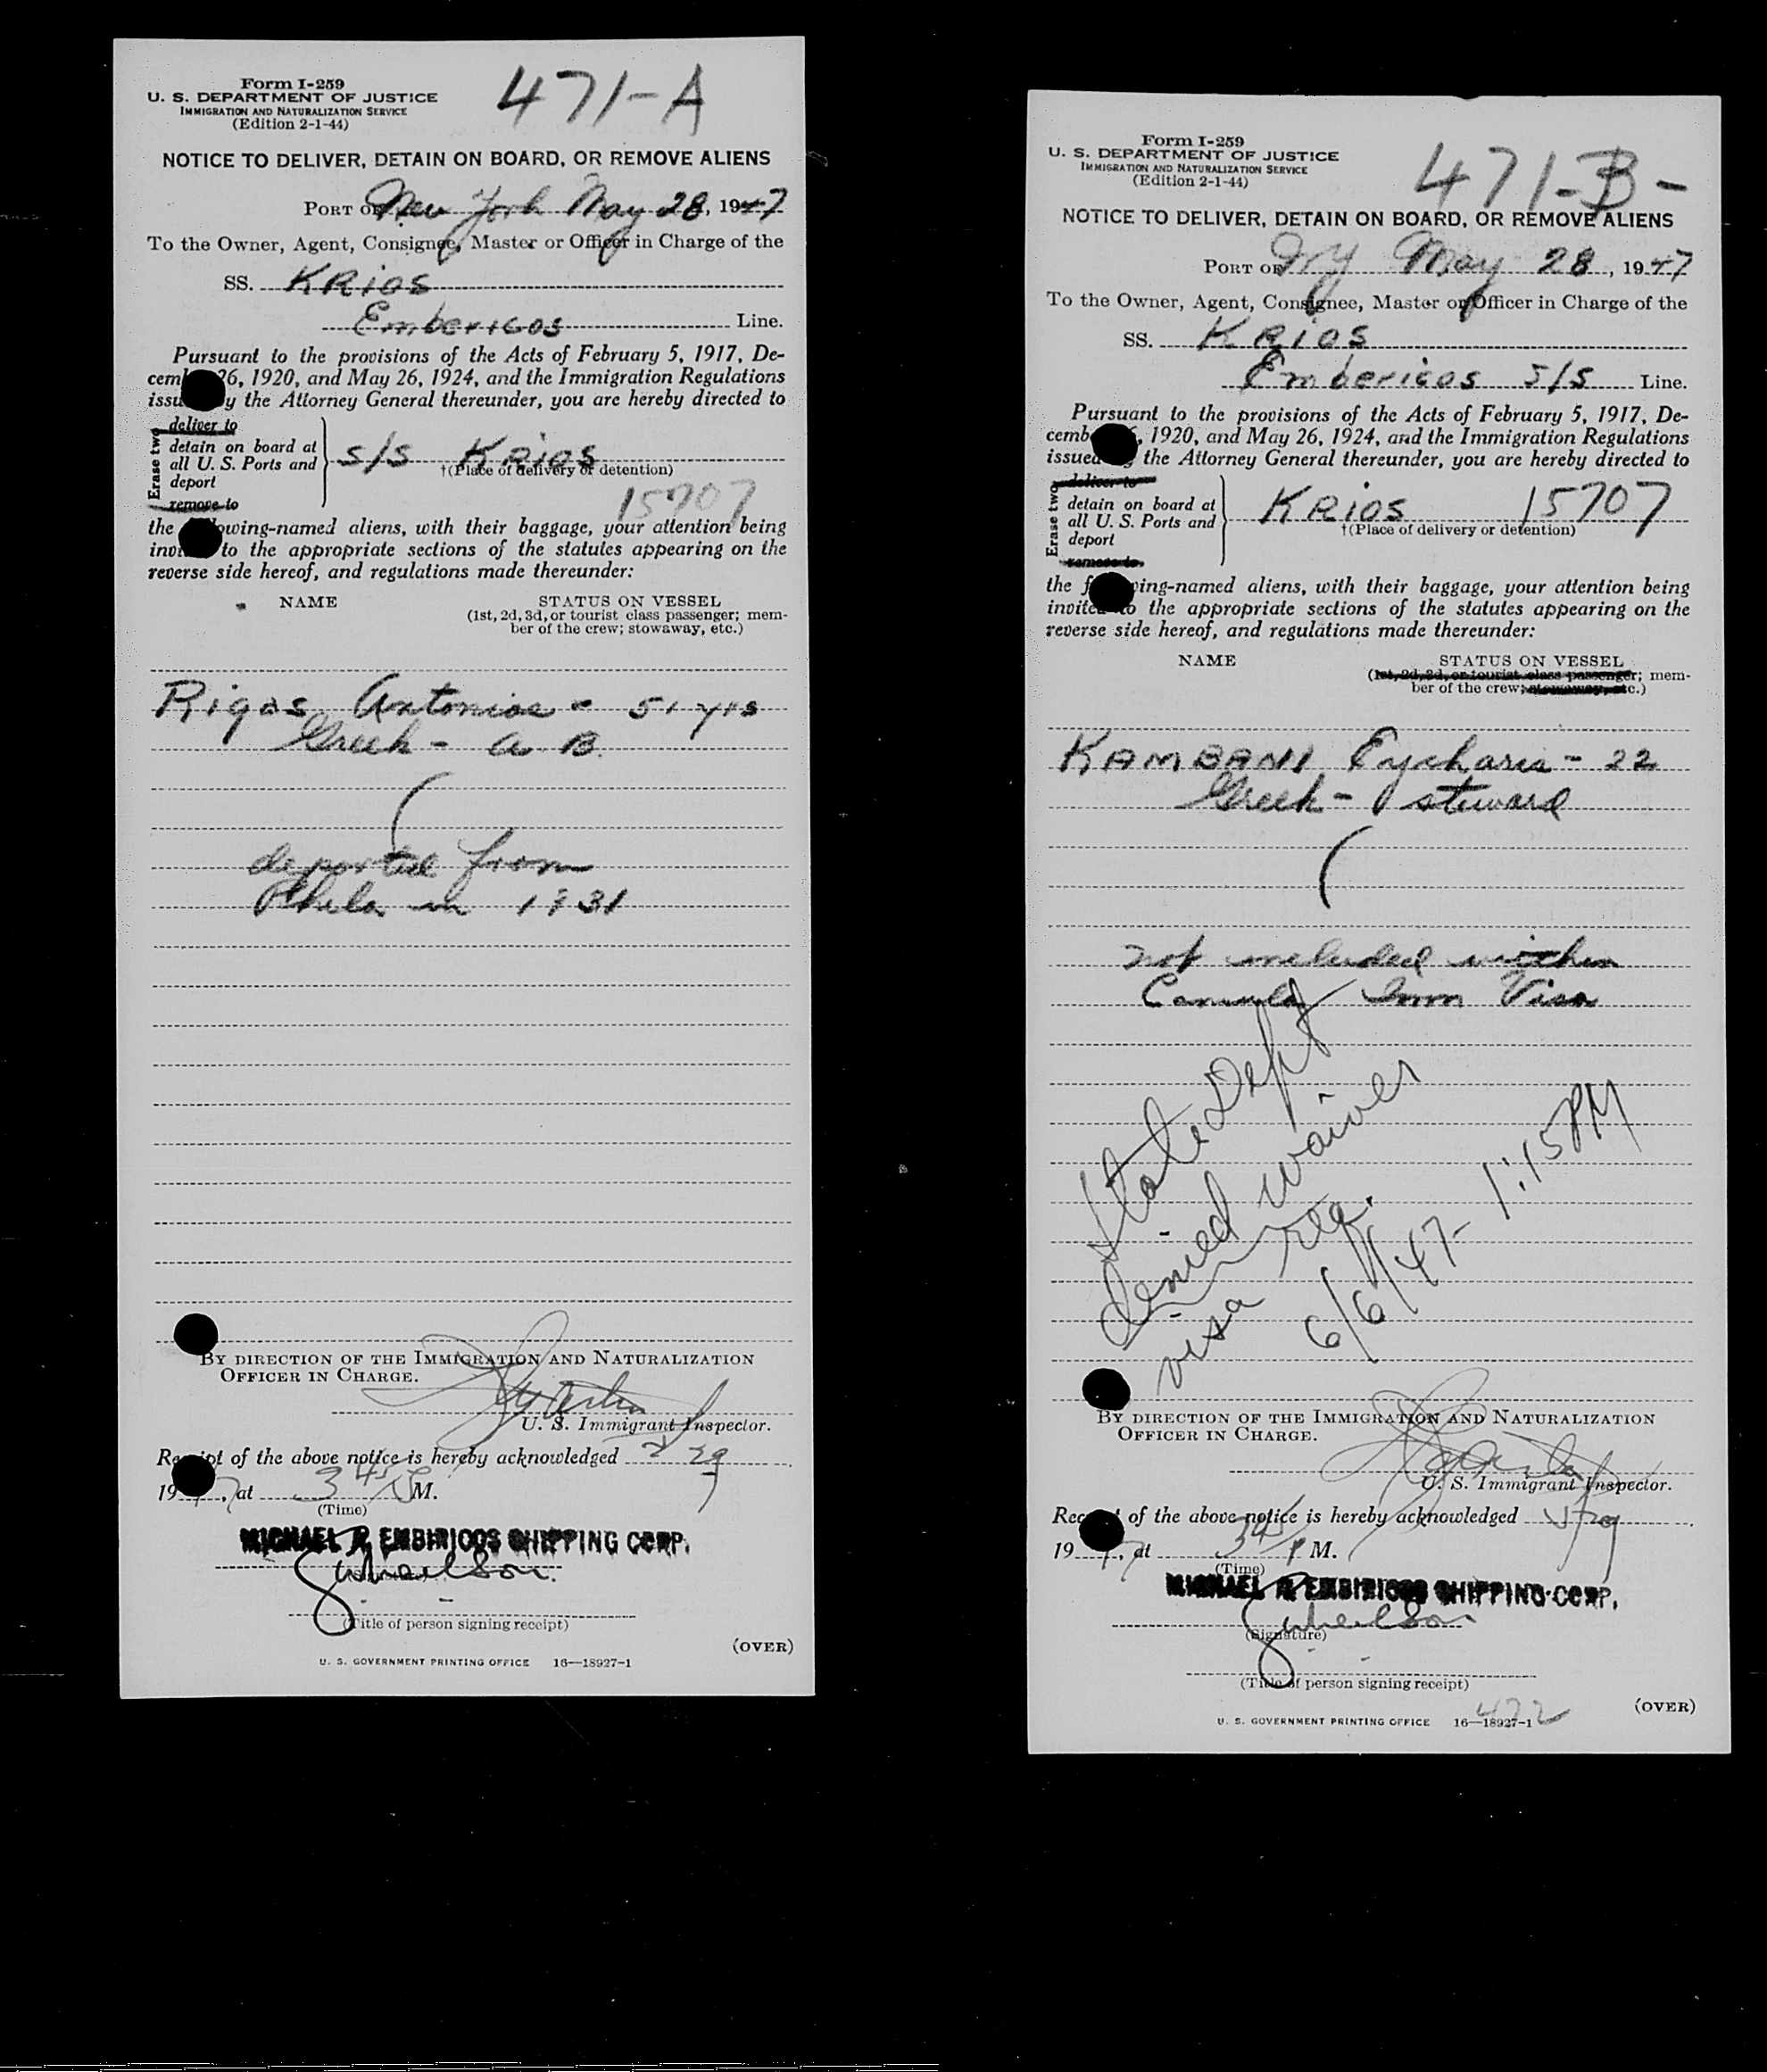 Form I-259
U. S. DEPARTMENT OF JUSTICE
IMMIGRATION AND NATURALIZATION SERVICE
(Edition 2-1-44)
471-A
NOTICE TO DELIVER, DETAIN ON BOARD, OR REMOVE ALIENS
PORT OF New York May 28, 1947
To the Owner, Agent, Consignee, Master or Officer in Charge of the
SS. KRIOS
Embericos Line.
Pursuant to the provisions of the Acts of February 5, 1917, De-
cem 26, 1920, and May 26, 1924, and the Immigration Regulations
issu y the Attorney General thereunder, you are hereby directed to
Erase two
deliver to
detain on board at
all U. S. Ports and
deport
remove to
S/S KRIOS
†(Place of delivery or detention)
15707
the owing-named aliens, with their baggage, your attention being
invi to the appropriate sections of the statutes appearing on the
reverse side hereof, and regulations made thereunder:
NAME STATUS ON VESSEL
(1st, 2d, 3d, or tourist class passenger; mem-
ber of the crew; stowaway, etc.)
Rigas Antonios - 51 yrs
Greek - A B.
deported from
Phila in 1931
BY DIRECTION OF THE IMMIGRATION AND NATURALIZATION
OFFICER IN CHARGE.
U. S. Immigrant Inspector.
Receipt of the above notice is hereby acknowledged 29
1947, at 3 45 P M.
(Time)
MICHAEL P. EMBIRICOS SHIPPING CORP.
(Title of person signing receipt)
(OVER)
U. S. GOVERNMENT PRINTING OFFICE 16—18927-1
Form I-259
U. S. DEPARTMENT OF JUSTICE
IMMIGRATION AND NATURALIZATION SERVICE
(Edition 2-1-44)
471-B-
NOTICE TO DELIVER, DETAIN ON BOARD, OR REMOVE ALIENS
PORT OF NY May 28, 1947
To the Owner, Agent, Consignee, Master or Officer in Charge of the
SS. KRIOS
Embericos S/S Line.
Pursuant to the provisions of the Acts of February 5, 1917, De-
cemb 6, 1920, and May 26, 1924, and the Immigration Regulations
issued the Attorney General thereunder, you are hereby directed to
Erase two
deliver to
detain on board at
all U. S. Ports and
deport
remove to
KRIOS 15707
†(Place of delivery or detention)
the f wing-named aliens, with their baggage, your attention being
invited to the appropriate sections of the statutes appearing on the
reverse side hereof, and regulations made thereunder:
NAME STATUS ON VESSEL
(1st, 2d, 3d, or tourist class passenger; mem-
ber of the crew; stowaway, etc.)
KAMBANI Eycharis - 22
Greek - steward
not included within
Consular Imm Visa
State Dept
denied waiver
visa req.
6/6/47 - 1:15 PM
BY DIRECTION OF THE IMMIGRATION AND NATURALIZATION
OFFICER IN CHARGE.
U. S. Immigrant Inspector.
Receipt of the above notice is hereby acknowledged 29
1947, at 345 P M.
(Time)
MICHAEL P. EMBIRICOS SHIPPING CORP.
(Signature)
(Title of person signing receipt)
472
(OVER)
U. S. GOVERNMENT PRINTING OFFICE 16—18927-1